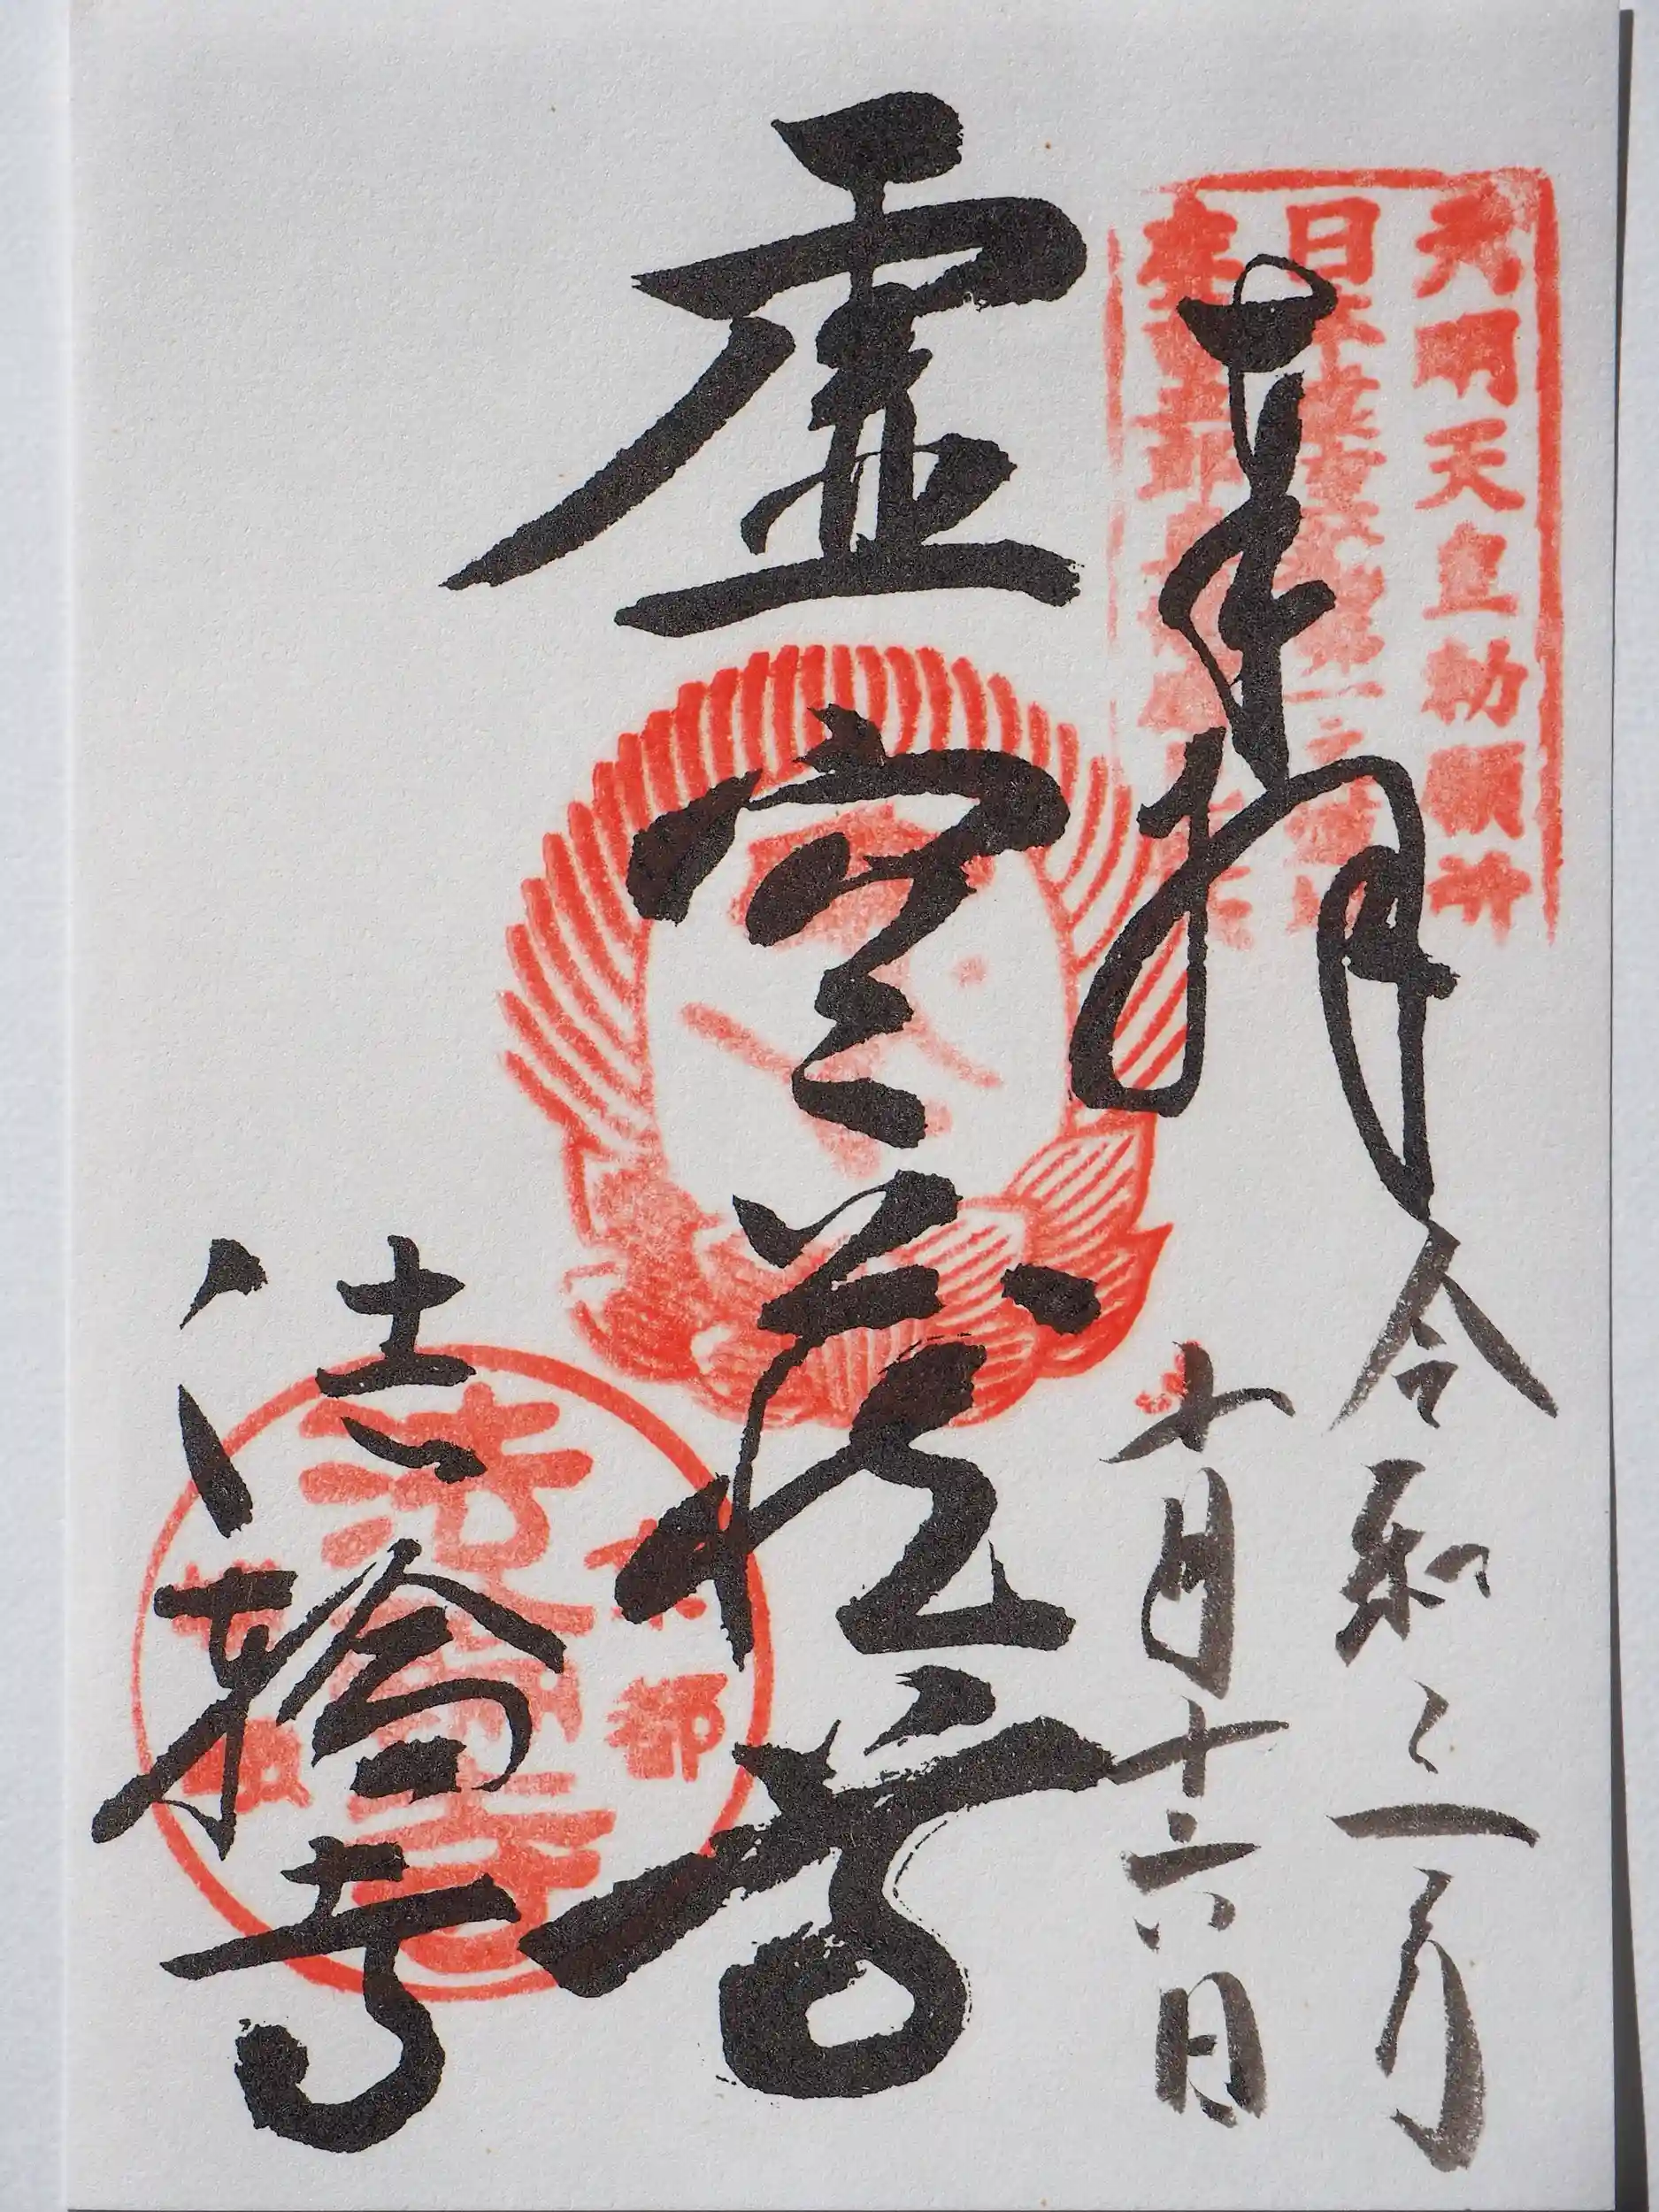 奉拝
令和三年
十月十六日
虚空蔵尊
法輪寺
元明天皇勅願所
京都
嵯峨
法輪寺